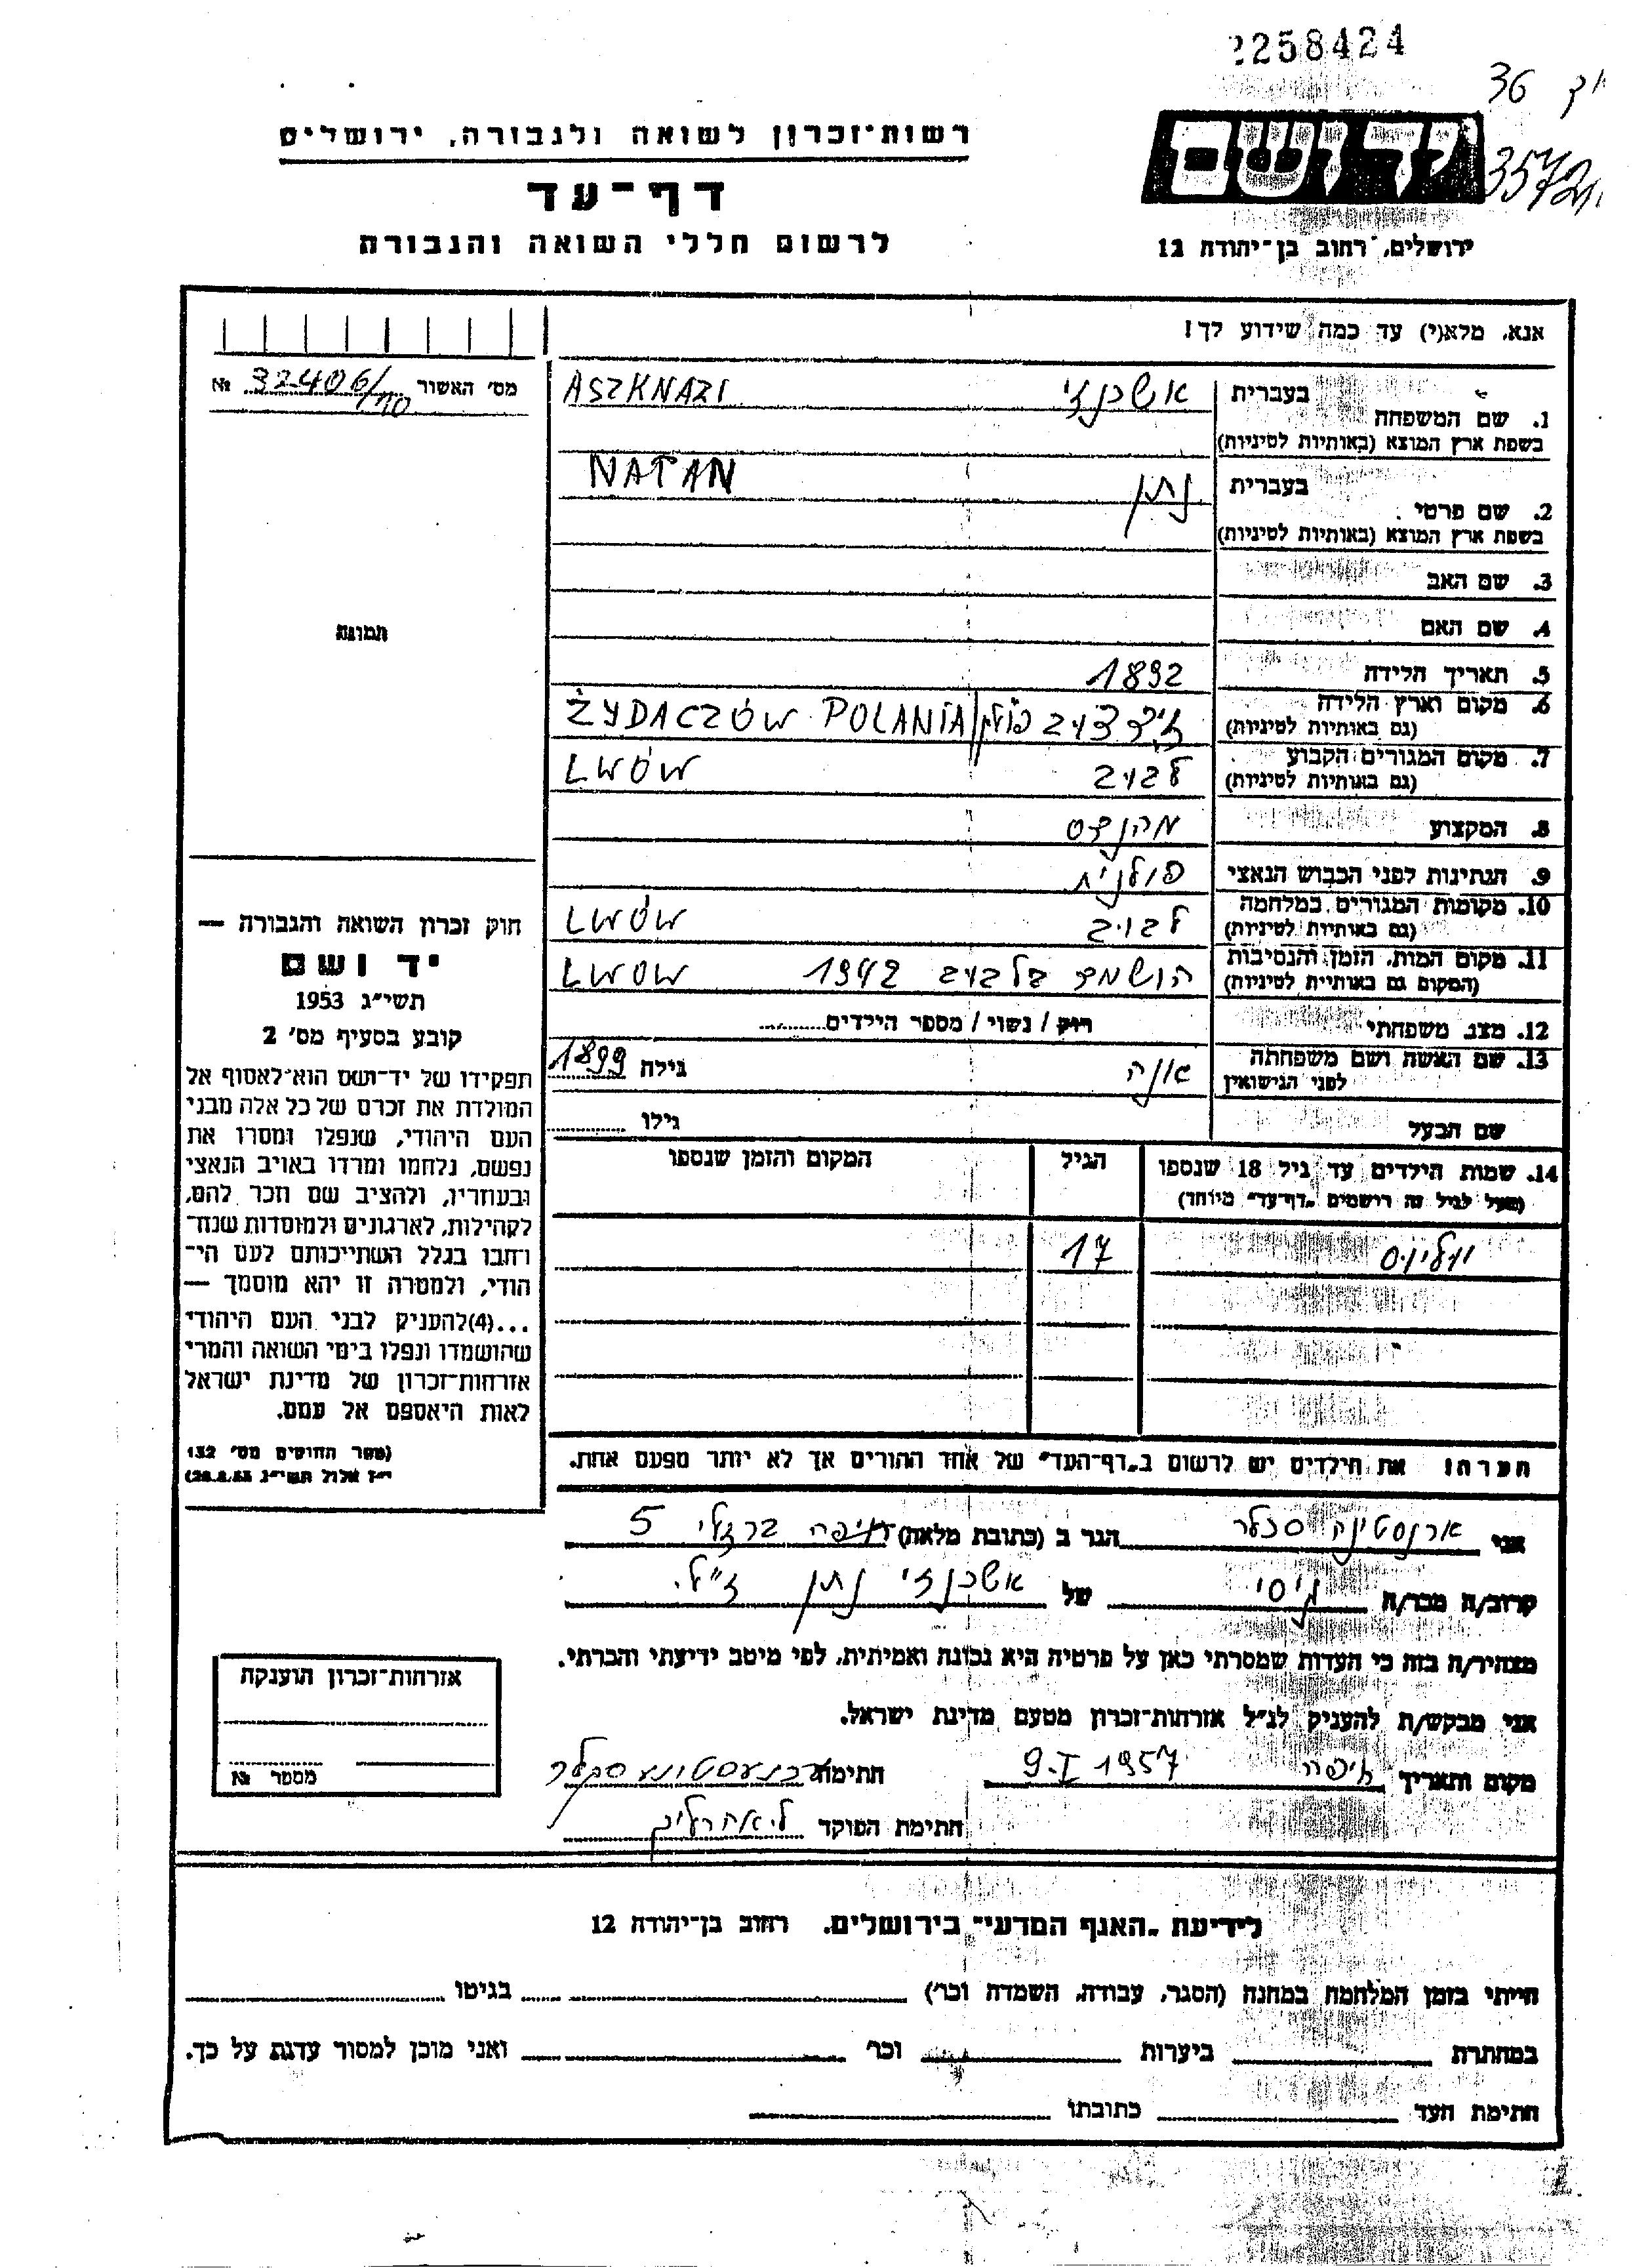 2258424
36
רשות־זכרון לשואה ולגבורה, ירושלים
יד ושם
דף־עד
לרשום חללי השואה והגבורה
ירושלים, רחוב בן־יהודה 12
אנא, מלא(י) עד כמה שידוע לך!
מס' האשור 32406/170 №
1. שם המשפחה בעברית אשכנזי ASZKNAZI
בשפת ארץ המוצא (באותיות לטיניות)
2. שם פרטי בעברית נתן NATAN
בשפת ארץ המוצא (באותיות לטיניות)
3. שם האב
4. שם האם
תמונה
5. תאריך הלידה 1892
6. מקום וארץ הלידה זידצוב פולין ŻYDACZÓW POLANIA
(גם באותיות לטיניות)
7. מקום המגורים הקבוע לבוב LWÓW
(גם באותיות לטיניות)
8. המקצוע מהנדס
9. הנתינות לפני הכבוש הנאצי פולנית
10. מקומות המגורים במלחמה לבוב LWÓW
(גם באותיות לטיניות)
11. מקום המות, הזמן והנסיבות הושמד בלבוב 1942 LWOW
(המקום גם באותיות לטיניות)
12. מצב משפחתי רוק / נשוי / מספר הילדים
13. שם האשה ושם משפחתה גילה 1899
לפני הנישואין
שם הבעל גילו
14. שמות הילדים עד גיל 18 שנספו הגיל המקום והזמן שנספו
(מעל לגיל זה רושמים „דף־עד" מיוחד)
יוליוס 17
הערה: את הילדים יש לרשום ב„דף־העד" של אחד ההורים אך לא יותר מפעם אחת.
חוק זכרון השואה והגבורה —
יד ושם
תשי"ג 1953
קובע בסעיף מס' 2
תפקידו של יד־ושם הוא לאסוף אל
המולדת את זכרם של כל אלה מבני
העם היהודי, שנפלו ומסרו את
נפשם, נלחמו ומרדו באויב הנאצי
ובעוזריו, ולהציב שם וזכר להם,
לקהילות, לארגונים ולמוסדות שנח־
רחבו בגלל השתייכותם לעם הי־
הודי, ולמטרה זו יהא מוסמך —
...(4) להעניק לבני העם היהודי
שהושמדו ונפלו בימי השואה והמרי
אזרחות־זכרון של מדינת ישראל
לאות היאספם אל עמם.
(ספר החוקים מס' 132
י"ז אלול תשי"ג 28.8.53)
אני ארנסטינה סכלר הגר ב (כתובת מלאה) חיפה ברזלי 5
קרוב/ה מכר/ה גיסי של אשכנזי נתן ז"ל.
מצהיר/ה בזה כי העדות שמסרתי כאן על פרטיה היא נכונה ואמיתית, לפי מיטב ידיעתי והכרתי.
אני מבקש/ת להעניק לנ"ל אזרחות־זכרון מטעם מדינת ישראל.
מקום ותאריך חיפה 9.I 1957 חתימה
חתימת הפוקד
אזרחות־זכרון הוענקה
מספר №
לידיעת „האגף המדעי" בירושלים. רחוב בן־יהודה 12
הייתי בזמן המלחמה במחנה (הסגר, עבודה, השמדה וכו') בגיטו
במחתרת ביערות וכו' ואני מוכן למסור עדות על כך.
חתימת העד כתובתו